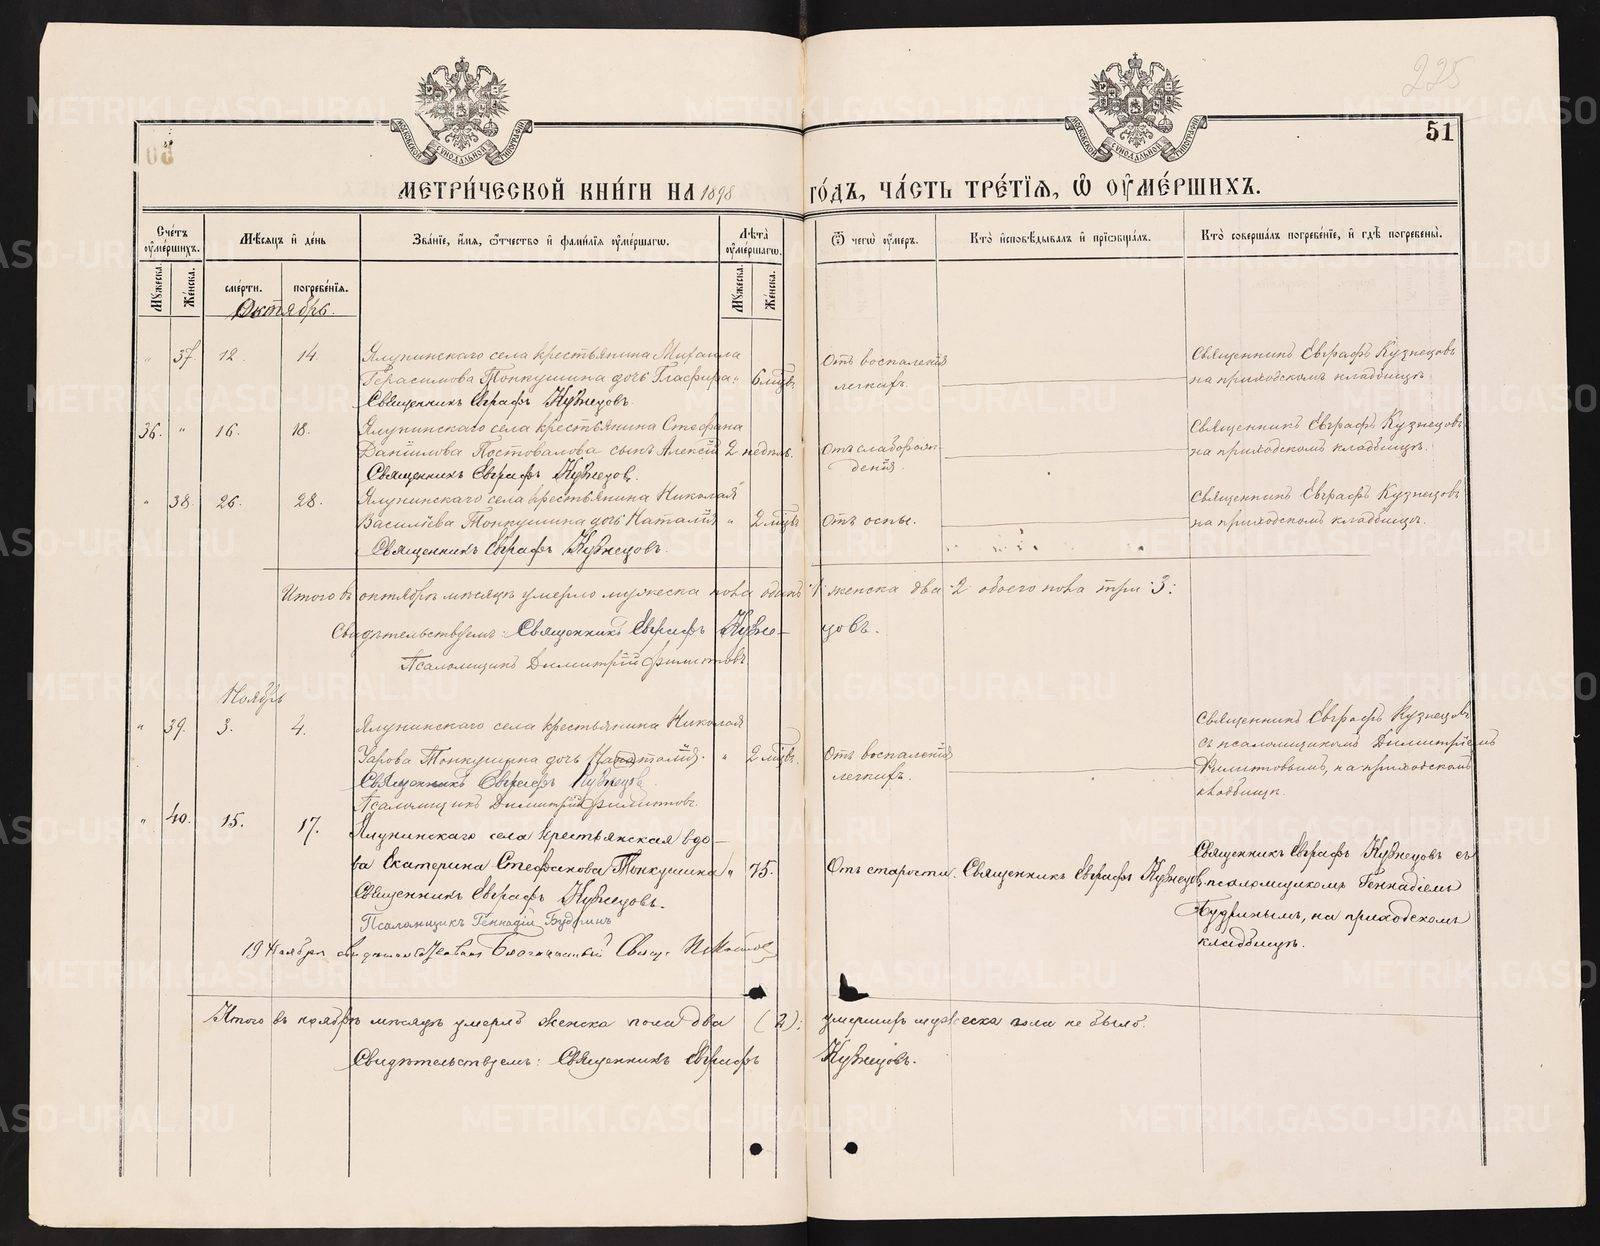 225
51
МЕТРИ́ЧЕСКОЙ КНИ́ГИ НА 1898 ГО́ДЪ, ЧА́СТЬ ТРЕ́ТІѦ, Ѽ ОУ҆МЕ́РШИХЪ.
Сче́тъ оу҆ме́ршихъ.
Мѣсѧцъ и҆ де́нь
Зва́ніе, и҆́мѧ, ѻ҆́тчество и҆ фами́лїѧ оу҆ме́ршагѡ.
Лѣ́та оу҆ме́ршагѡ.
Ѿ чегѡ̀ оу҆́меръ.
Кто̀ и҆сповѣ́дывалъ и҆ прїѡбща́лъ.
Кто̀ соверша́лъ погребе́нїе, и҆ гдѣ̀ погребены̀.
Му́жеска. Же́нска.
сме́рти. погребе́нїѧ.
Му́жеска. Же́нска.
Октябрь.
" 37. 12. 14. Ялунинскаго села крестьянина Михаила
Герасимова Топкушина дочь Глафира " 6 мцвъ
Священникъ Евграфъ Кузнецовъ.
Отъ воспаленія
легкихъ.
Священникъ Евграфъ Кузнецовъ
на приходскомъ кладбищѣ.
36. " 16. 18. Ялунинскаго села крестьянина Стефана
Даніилова Постовалова сынъ Алексій 2 недѣль.
Священникъ Евграфъ Кузнецовъ.
Отъ слаборож-
денія.
Священникъ Евграфъ Кузнецовъ
на приходскомъ кладбищѣ.
" 38. 26. 28. Ялунинскаго села крестьянина Николая
Василіева Топкушина дочь Наталія " 2 мцвъ
Священникъ Евграфъ Кузнецовъ.
Отъ оспы.
Священникъ Евграфъ Кузнецовъ
на приходскомъ кладбищѣ.
Итого въ октябрѣ мѣсяцѣ умерло мужеска пола одинъ 1 женска два 2 обоего пола три 3:
Свидѣтельствуемъ: Священникъ Евграфъ Кузне-цовъ.
Псаломщикъ Димитрій Филитовъ
Ноябрь
" 39. 3. 4. Ялунинскаго села крестьянина Николая
Топкушина дочь Наталія. " 2 мцвъ.
Священникъ Евграфъ Кузнецовъ
Псаломщикъ Димитрій Филитовъ.
Отъ воспаленія
легкихъ.
Священникъ Евграфъ Кузнецовъ
съ псаломщикомъ Димитріемъ
Филитовымъ, на приходскомъ
кладбищѣ.
" 40. 15. 17. Ялунинскаго села крестьянская вдо-
ва Екатерина Стефанова Топкушина " 75.
Священникъ Евграфъ Кузнецовъ.
Псаломщикъ Геннадій Будринъ
Отъ старости.
Священникъ Евграфъ Кузнецовъ
Священникъ Евграфъ Кузнецовъ съ
псаломщикомъ Геннадіемъ
Будринымъ, на приходскомъ
кладбищѣ.
19 Ноября Благочинный Свящ.
Итого въ ноябрѣ мѣсяцѣ умерло женска пола два (2); умершихъ мужеска пола не было.
Свидѣтельствуемъ: Священникъ Евграфъ Кузнецовъ.
METRIKI.GASO-URAL.RU